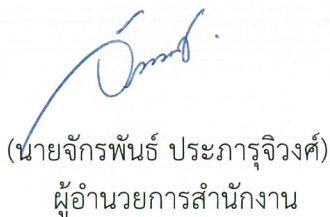 (นายจักรพันธ์ ประภารุจิวงศ์)
ผู้อำนวยการสำนักงาน